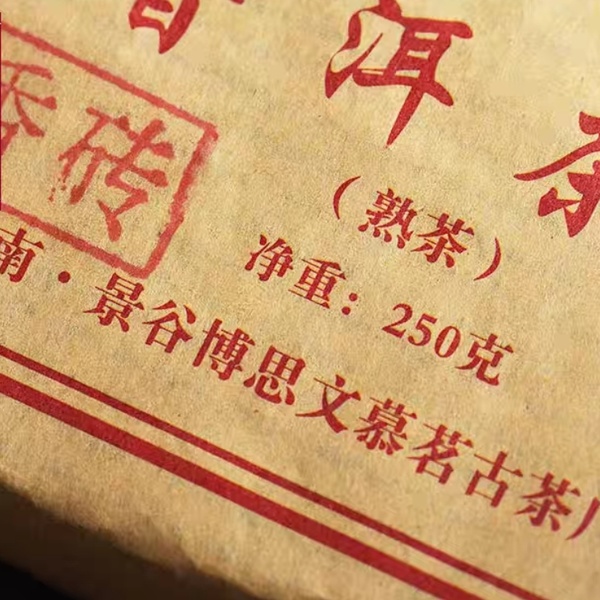 普洱茶
香砖
（熟茶）
净重：250克
南·景谷博思文慕茗古茶厂